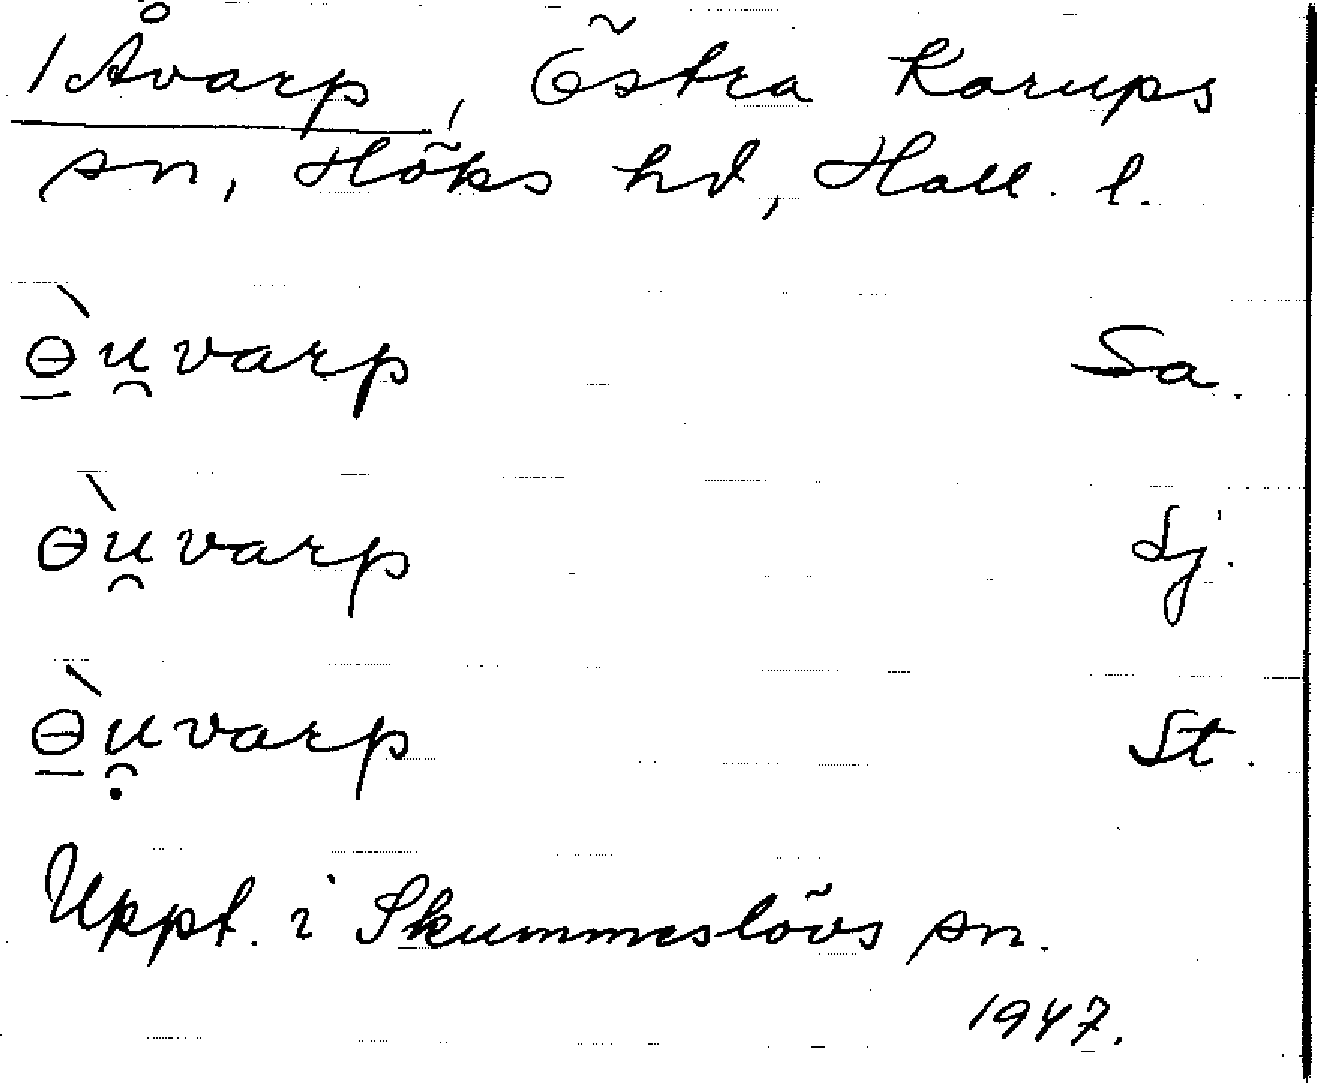 /Åvarp, Östra Karups
sn, Höks hd, Hall. l.
ɵ̱̀u̯varp Sa.
ɵ̀u̯varp Sj.
ɵ̱̀ụ̯varp St.
Uppt. i Skummeslövs sn.
1947.